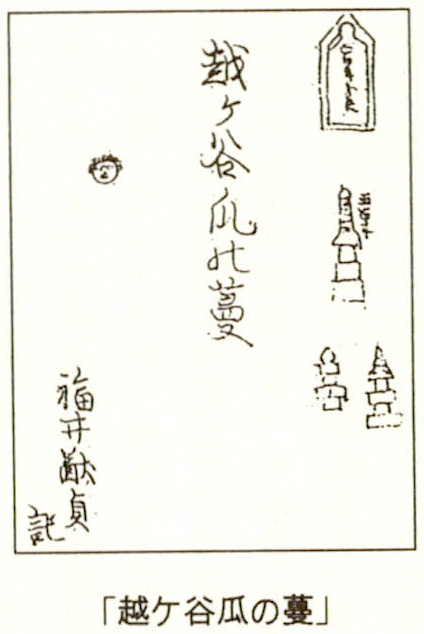 越ヶ谷瓜の蔓
福井猷貞
記
「越ケ谷瓜の蔓」